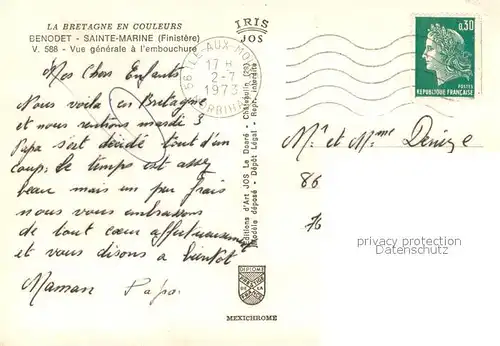 LA BRETAGNE EN COULEURS
BENODET - SAINTE-MARINE (Finistère)
V. 588 - Vue générale à l'embouchure
Mes Chers Enfants
Nous voila en Bretagne
et nous rentrons mardi 3
Papa s'est décidé tout d'un
coup. Le temps est assez
beau mais un peu frais
nous vous embrassons
de tout cœur affectueusement
et vous disons a bientôt
Maman Papa
IRIS
JOS
Editions d'Art JOS Le Doaré - Châteaulin (29)
Modèle déposé - Dépôt Légal - Repr. interdite
DIPLOME
PRESTIGE
DE LA
FRANCE
MEXICHROME
56 ILE-AUX-MOINES
17 H
2-7
1973
MORBIHAN
0,30
POSTES
REPUBLIQUE FRANÇAISE
Mr et Mme Denize
86
76
privacy protection
Datenschutz